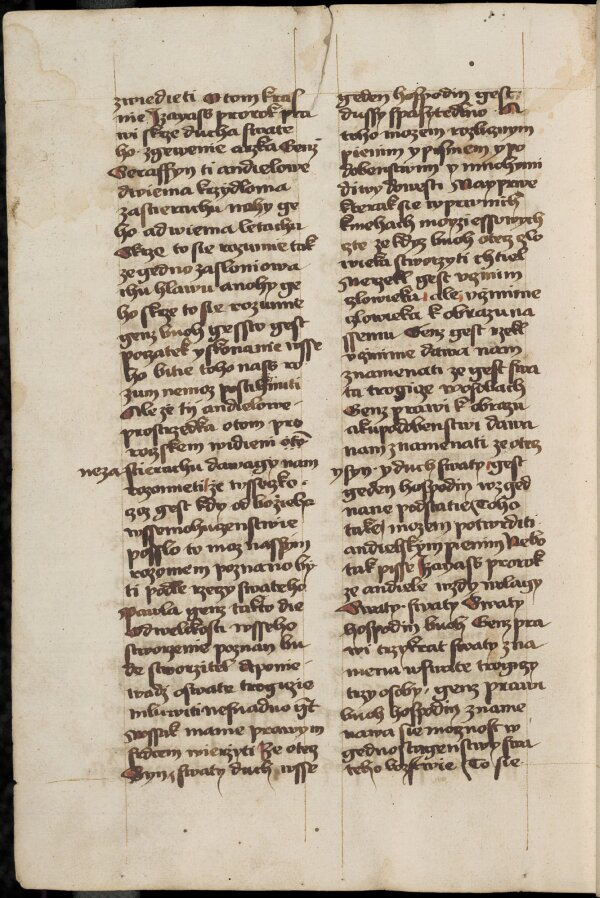 zwiedieti O tom kras
nie Izayass prorok pra
wi skrze ducha swate
ho zgewenie arzka Genz
Seraffyn ti andielowe
dwiema krzydloma
zastierachu nohy ge
ho a dwiema letachu
Skrze to sie rozumie tak
ze gedno zasloniowa
chu hlawu a nohy ge
ho skrze to sie rozumie
genz buoh gessto gest
poczatek y skonanie wsse
ho bitie toho nass ro
zum nemoz postihnuti
Ale ze ty andielowe
prostrzedka o tom pro
roczskem widieni
neza stierachu dawagy nam
rozomieti ze wsseczko
czoz gest kdy od bozieho
wssemohuczenstwie
posslo to moz nassym
rozomem poznano by
ti podle rzeczy swateho
Pawla genz takto die
Od welikosti wsseho
stworzenie poznan bu
de stworzitel A ponie
wadz o swate trogiczie
mluwiti nesnadno gt
wssak mame prawym
srdcem wierzyti Ze otecz
Syn swaty duch wsse
geden hospodin gest
dussy spasytedlno A
toho mozem rozlicznym
pienim y pismem y po
dobenstwim y mnohymi
diwy dowesti Nayprwe
kterak sie w prwnich
knihach moyziessowych
czte ze kdyz buoh otecz czlo
wieka stworzyti chtiel
Nerzekl gest vczinim
czlowieka ale vczinime
czlowieka k obrazu na
ssemu Genz gest rzekl
vczinime dawa nam
znamenati ze gest swa
ta trogicze w osobach
Genz prawi k obrazu
a ku podobenstwi dawa
nam znamenati ze otecz
y syn y duch swaty gest
geden hospodin w ged
nane podstatie Toho
take mozem potwrditi
andielskym pienim Nebo
tak pisse Izayass prorok
ze andiele wzdy wolagy
Swaty swaty Swaty
hospodin buoh Genz pra
wi trzykrat swaty zna
mena w swate trogiczy
trzy osoby genz prawi
buoh hospodin zname
nawa sie moznost w
gednostagenstwy swa
teho bozstwie To sie